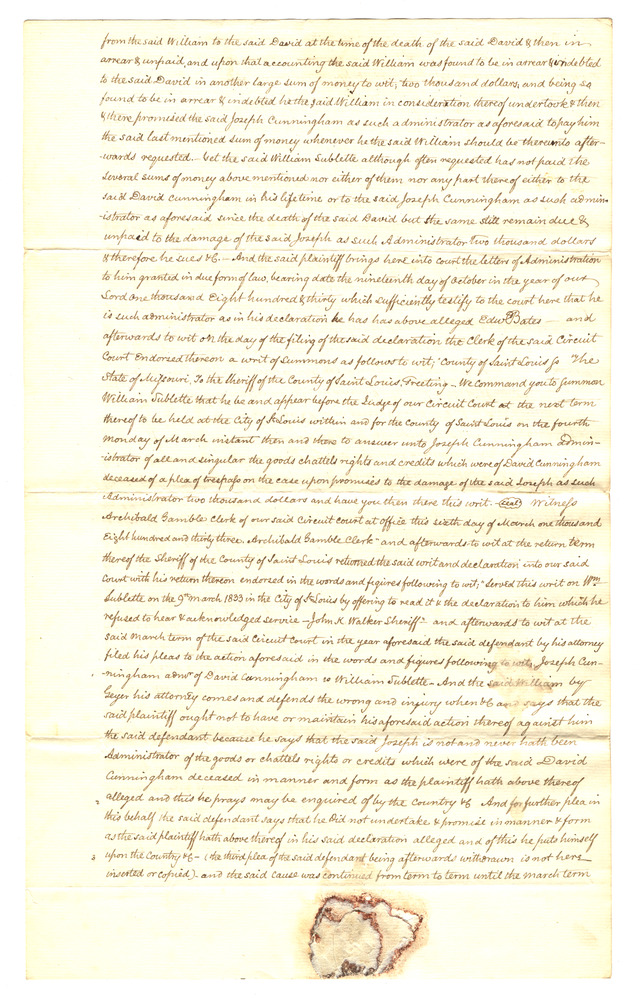 from the said William to the said David at the time of the death of the said David & then in
arrear & unpaid, and upon that accounting the said William was found to be in arrear & indebted
to the said David in another large sum of money to wit, two thousand dollars, and being so
found to be in arrear & indebted he the said William in consideration thereof undertook & then
& there promised the said Joseph Cunningham as such administrator as aforesaid to pay him
the said last mentioned sum of money whenever he the said William should be thereunto after-
wards requested. - Yet the said William Sublette although often requested has not paid the
several sums of money above mentioned nor either of them nor any part thereof either to the
said David Cunningham in his lifetime or to the said Joseph Cunningham as such admin-
-istrator as aforesaid since the death of the said David but the same still remain due &
unpaid to the damage of the said Joseph as such Administrator two thousand dollars
& therefore he sues &c - And the said plaintiff brings here into court the letters of Administration
to him granted in due form of law, bearing date the nineteenth day of october in the year of our
Lord one thousand Eight hundred & thirty which sufficiently testify to the court here that he
is such administrator as in his declaration he has has above alleged Edwd Bates - and
afterwards to wit on the day of the filing of the said declaration the Clerk of the said Circuit
Court Endorsed thereon a writ of Summons as follows to wit; "County of Saint Louis ss The
State of Missouri, To the Sheriff of the County of Saint Louis, Greeting - We command you to summon
William Sublette that he be and appear before the Judge of our Circuit Court at the next term
thereof to be held at the City of St Louis within and for the County of Saint Louis on the fourth
monday of March instant then and there to answer unto Joseph Cunningham admin-
-istrator of all and singular the goods chattels rights and credits which were of David Cunningham
deceased of a plea of trespass on the case upon promises to the damage of the said Joseph as such
Administrator two thousand dollars and have you then there this writ. - (Seal) Witness
Archibald Gamble Clerk of our said Circuit court at office this sixth day of March one thousand
Eight hundred and thirty three. Archibald Gamble Clerk" and afterwards to wit at the return term
thereof the Sheriff of the County of Saint Louis returned the said writ and declaration into our said
Court with his return thereon endorsed in the words and figures following to wit; "Served this writ on Wm
Sublette on the 9th March 1833 in the City of St Louis by offering to read it & the declaration to him which he
refused to hear & acknowledged service - John K. Walker Sheriff" and afterwards to wit at the
said March term of the said Circuit Court in the year aforesaid the said defendant by his attorney
filed his pleas to the action aforesaid in the words and figures following to wit, Joseph Cun-
-ningham admr of David Cunningham vs William Sublette - And the said William by
Geyer his attorney comes and defends the wrong and injury when &c and says that the
said plaintiff ought not to have or maintain his aforesaid action thereof against him
the said defendant because he says that the said Joseph is not and never hath been
Administrator of the goods or chattels rights or credits which were of the said David
Cunningham deceased in manner and form as the plaintiff hath above thereof
alleged and this he prays may be enquired of by the Country &c And for further plea in
2 this behalf the said defendant says that he Did not undertake & promise in manner & form
as the said plaintiff hath above thereof in his said declaration alleged and of this he puts himself
3 upon the Country &c - (the third plea of the said defendant being afterwards withdrawn is not here
inserted or copied) - and the said cause was continued from term to term until the march term